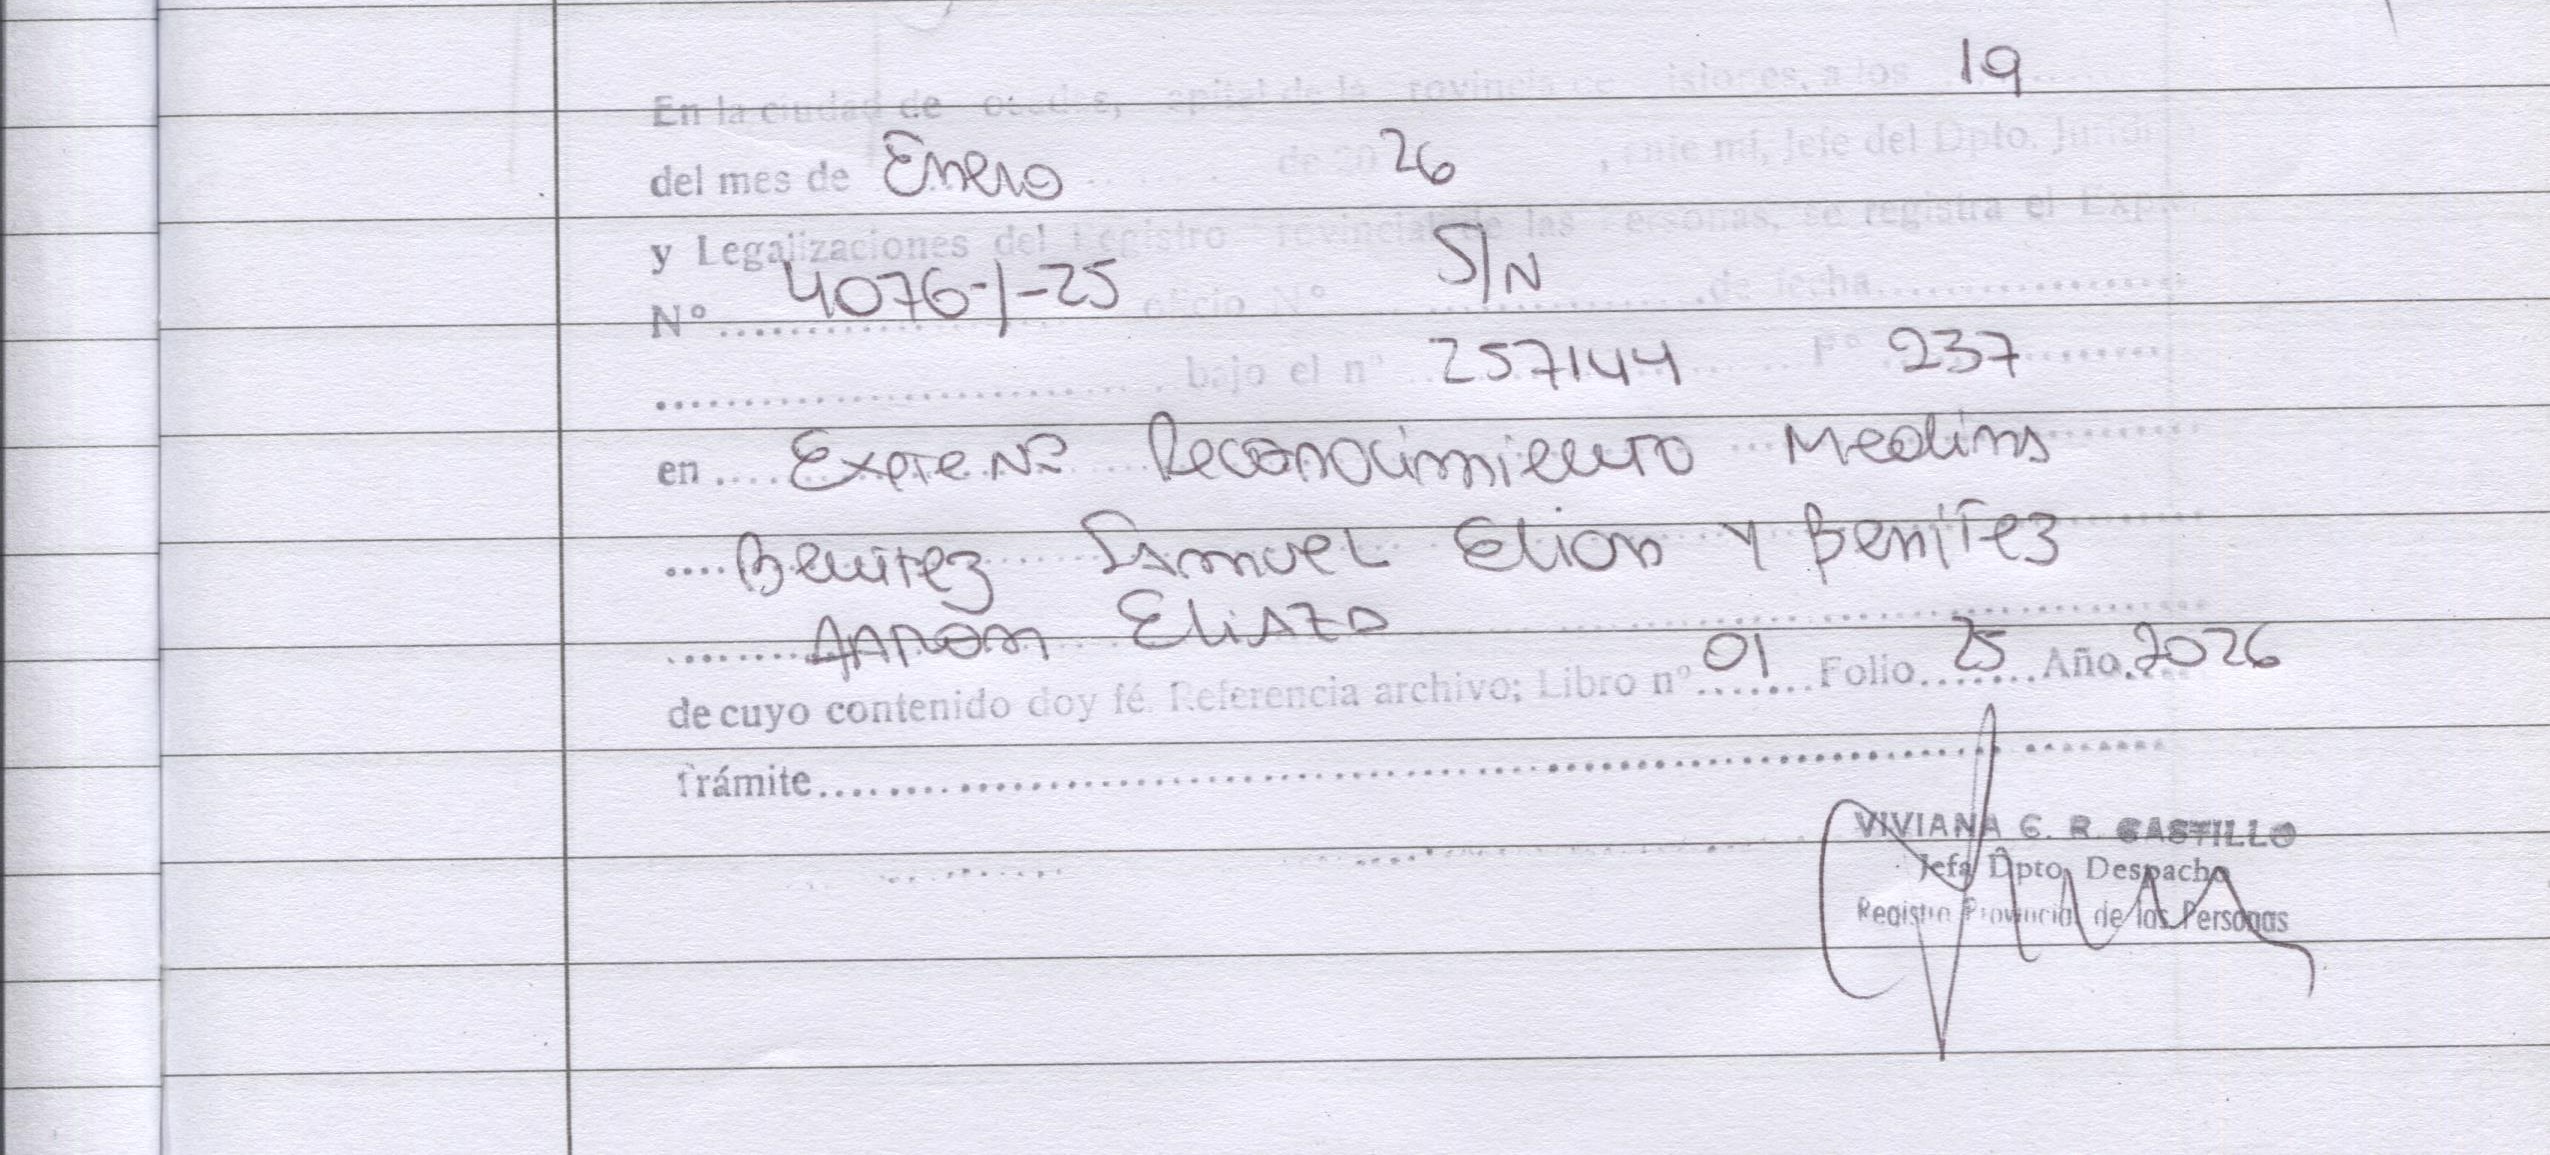 En la ciudad de Posadas, capital de la Provincia de Misiones, a los 19
del mes de Enero de 2026, ante mí, Jefe del Dpto. Jurídi
y Legalizaciones del Registro Provincial de las Personas, se registra el Expte
Nº 4076-1-25 oficio Nº S/N de fecha
bajo el nº 257144 Fº 237
en Expte Nº Reconocimiento Medina
Benitez Samuel Elian y Benitez
Aaron
de cuyo contenido doy fé. Referencia archivo; Libro nº 01 Folio 25 Año 2026
Trámite
VIVIANA G. R. CASTILLO
Jefa Dpto Despacho
Registro Provincial de las Personas